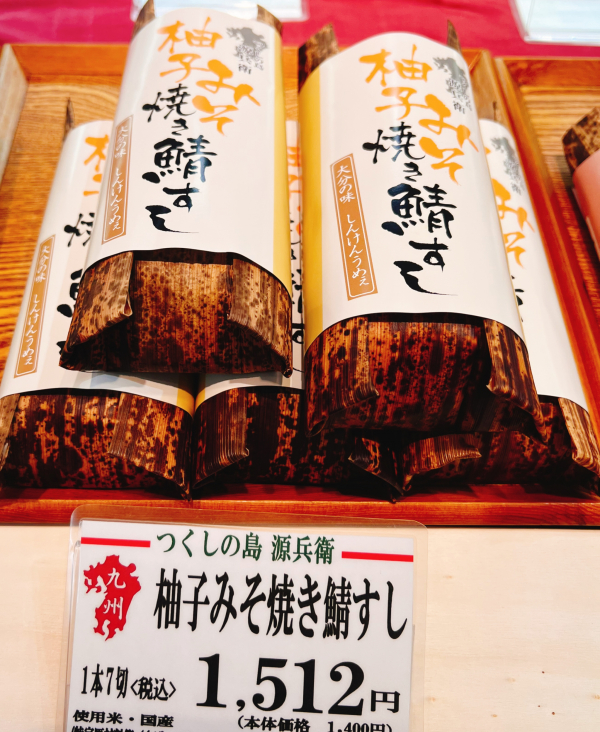 柚子みそ
焼き鯖すし
大分の味 しんけんうめぇ
柚子みそ
焼き鯖すし
大分の味 しんけんうめぇ
大分の味 しんけんうめぇ
つくしの島 源兵衛
九州
柚子みそ焼き鯖すし
1本7切<税込>
1,512円
使用米・国産
(本体価格 1,400円)